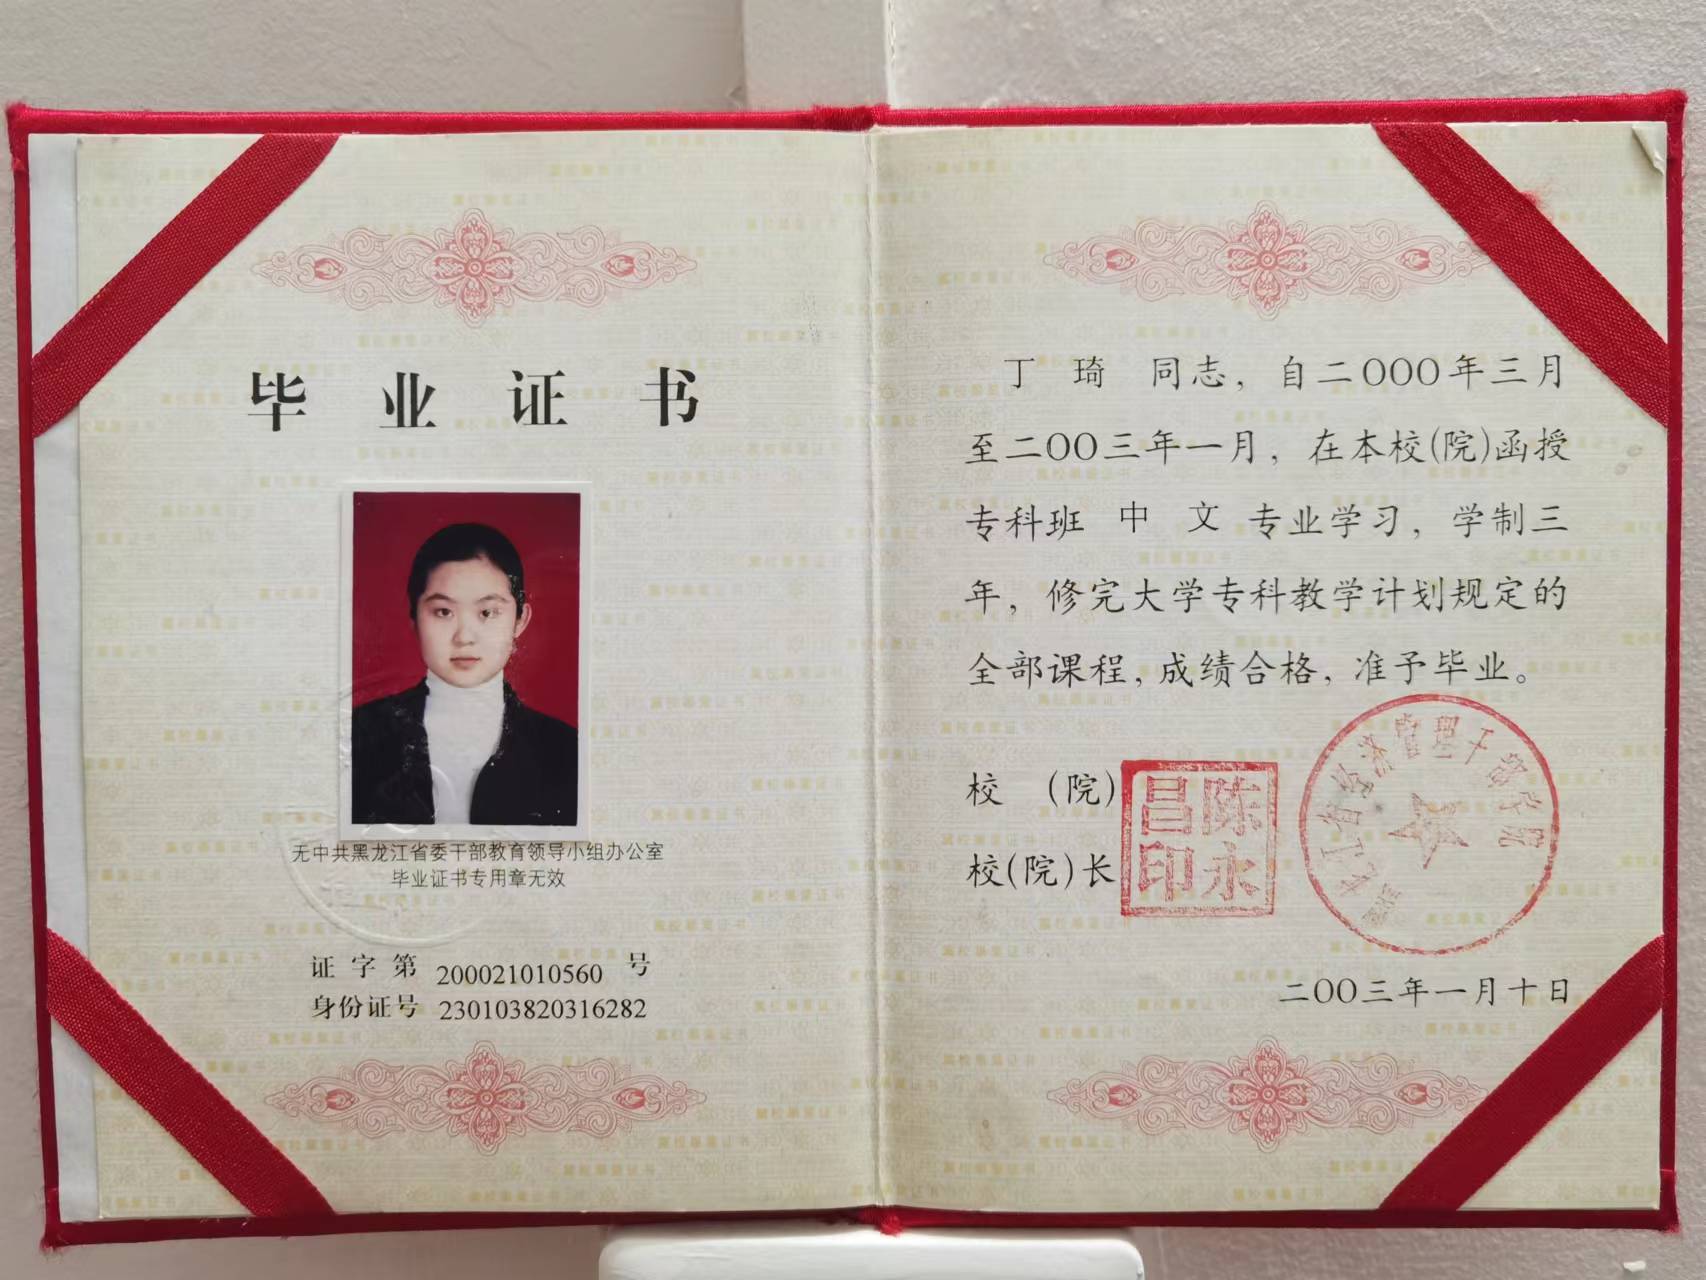 毕业证书
无中共黑龙江省委干部教育领导小组办公室
毕业证书专用章无效
证字第 200021010560 号
身份证号 230103820316282
丁琦 同志，自二〇〇〇年三月
至二〇〇三年一月，在本校(院)函授
专科班 中文 专业学习，学制三
年，修完大学专科教学计划规定的
全部课程，成绩合格，准予毕业。
校(院)
校(院)长
陈永昌印
黑龙江省经济管理干部学院
二〇〇三年一月十日